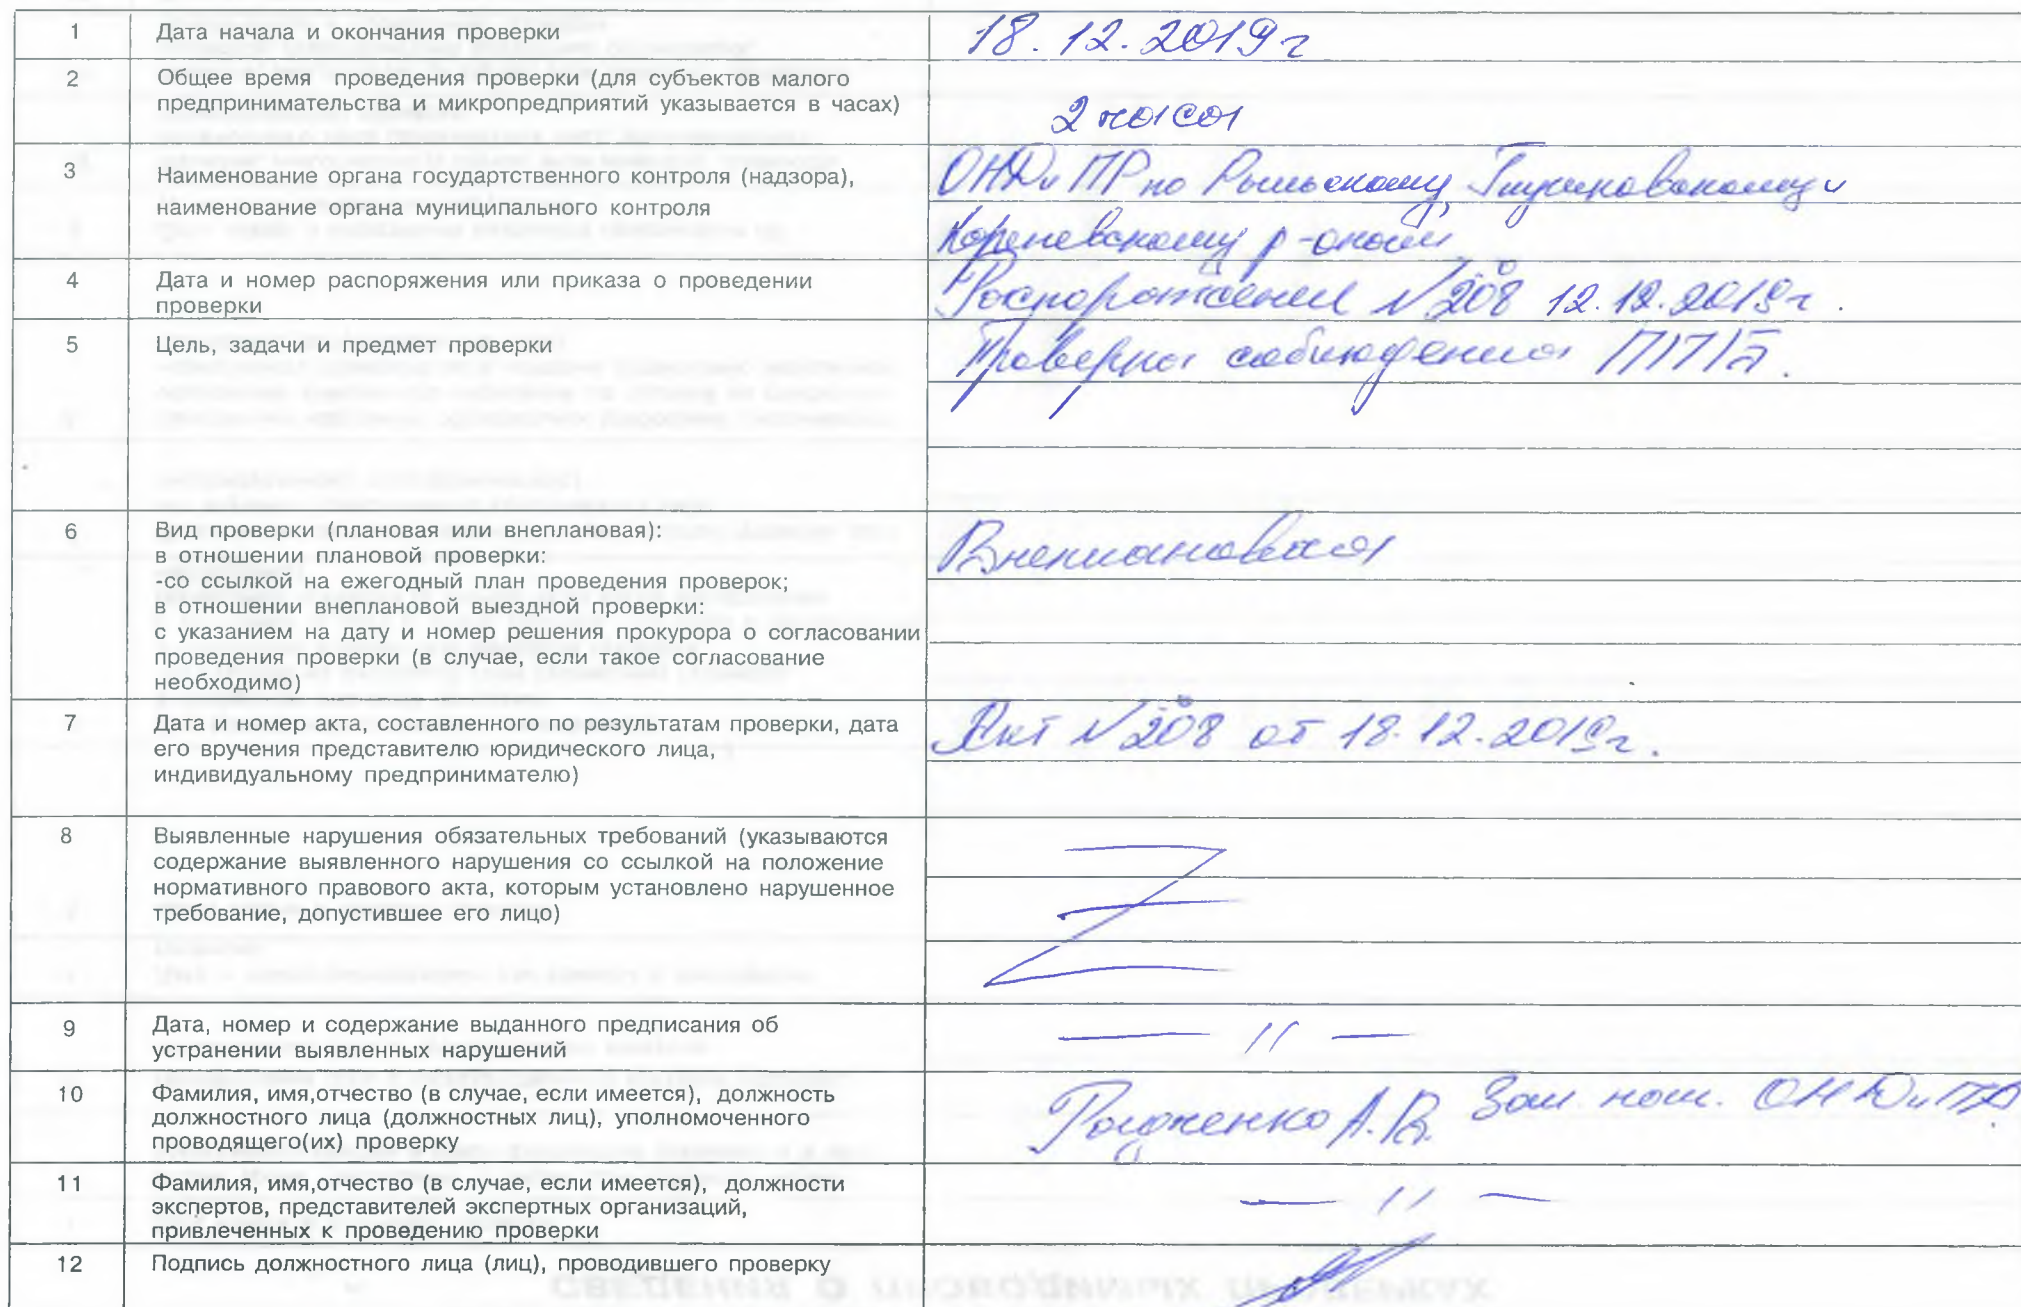 1 Дата начала и окончания проверки 18.12.2019г
2 Общее время проведения проверки (для субъектов малого
предпринимательства и микропредприятий указывается в часах)
2 часа
3 Наименование органа государтственного контроля (надзора),
наименование органа муниципального контроля
ОНД и ПР по Рыльскому, Глушковскому и
Кореневскому р-онам
4 Дата и номер распоряжения или приказа о проведении
проверки
Распоряжение №208 12.12.2019г.
5 Цель, задачи и предмет проверки
Проверка соблюдения ППБ.
6 Вид проверки (плановая или внеплановая):
в отношении плановой проверки:
-со ссылкой на ежегодный план проведения проверок;
в отношении внеплановой выездной проверки:
с указанием на дату и номер решения прокурора о согласовании
проведения проверки (в случае, если такое согласование
необходимо)
Внеплановая
7 Дата и номер акта, составленного по результатам проверки, дата
его вручения представителю юридического лица,
индивидуальному предпринимателю)
Акт №208 от 18.12.2019г.
8 Выявленные нарушения обязательных требований (указываются
содержание выявленного нарушения со ссылкой на положение
нормативного правового акта, которым установлено нарушенное
требование, допустившее его лицо)
9 Дата, номер и содержание выданного предписания об
устранении выявленных нарушений
— // —
10 Фамилия, имя,отчество (в случае, если имеется), должность
должностного лица (должностных лиц), уполномоченного
проводящего(их) проверку
А.В. Зам. нач. ОНД и ПР
11 Фамилия, имя,отчество (в случае, если имеется), должности
экспертов, представителей экспертных организаций,
привлеченных к проведению проверки
— // —
12 Подпись должностного лица (лиц), проводившего проверку